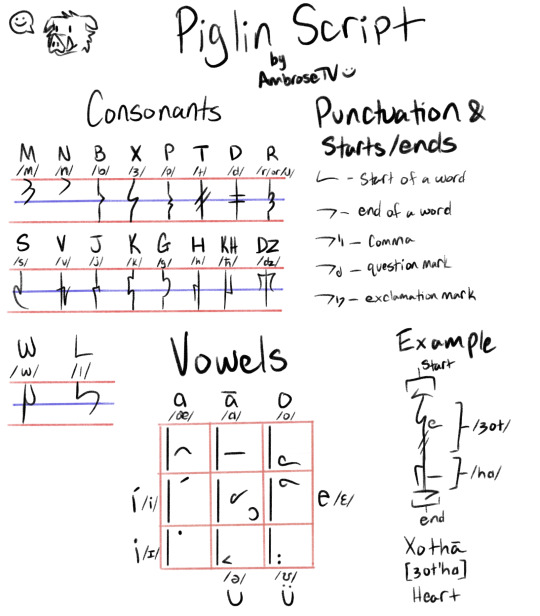 Piglin Script
by
AmbroseTV
Consonants
M N B X P T D R
/m/ /n/ /b/ /ʒ/ /p/ /t/ /d/
S V J K G H KH DZ
/s/ /v/ /j/ /k/ /g/ /h/ /dz/
W L
/w/ /l/
Punctuation &
Starts/ends
- Start of a word
- end of a word
- Comma
- question mark
- exclamation mark
Vowels
a ā o
/æ/ /a/ /o/
í /i/
e /ɛ/
i /ɪ/
/ə/ /ʊ/
U Ü
Example
Start
/ʒot/
/ha/
end
Xothā
[ʒot'ha]
Heart